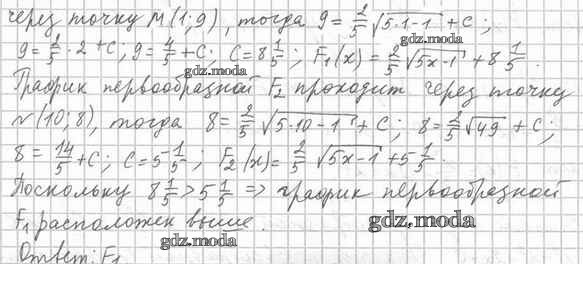 через точку M(1;9), тогда 9 = 2/5 √(5·1-1) + C;
9 = 2/5 · 2 + C; 9 = 4/5 + C; C = 8 1/5; F₁(x) = 2/5 √(5x-1) + 8 1/5.
gdz.moda
gdz.moda
График первообразной F₂ проходит через точку
N(10;8), тогда 8 = 2/5 √(5·10-1) + C; 8 = 2/5 √49 + C;
gdz.moda
8 = 14/5 + C; C = 5 1/5; F₂(x) = 2/5 √(5x-1) + 5 1/5.
gdz.moda
Поскольку 8 1/5 > 5 1/5 ⇒ график первообразной
F₁ расположен выше.
gdz.moda
gdz.moda
Ответ: F₁